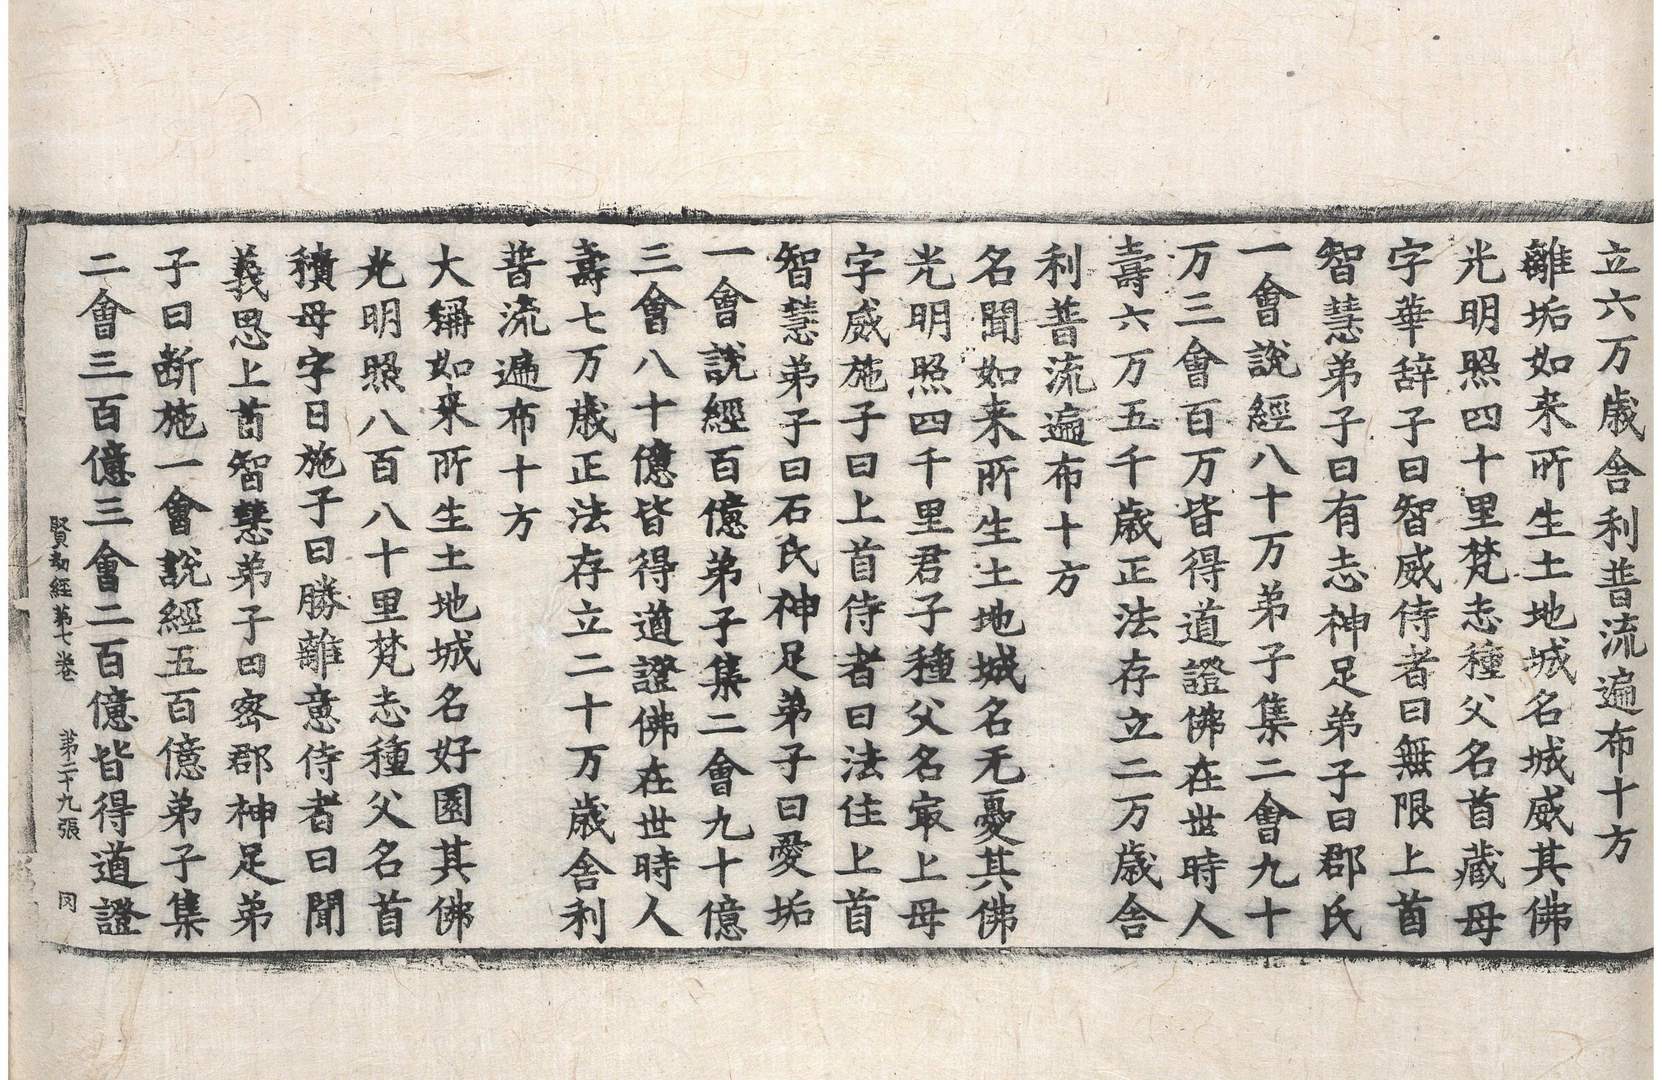 立六万歳舎利普流遍布十方
離垢如来所生土地城名城威其佛
光明照四十里梵志種父名首藏母
字華辞子曰智威侍者曰無限上首
智慧弟子曰有志神足弟子曰郡氏
一會說經八十万弟子集二會九十
万三會百万皆得道證佛在世時人
壽六万五千歳正法存立二万歳舎
利普流遍布十方
名聞如来所生土地城名无憂其佛
光明照四千里君子種父名寂上母
字威施子曰上首侍者曰法住上首
智慧弟子曰石氏神足弟子曰愛垢
一會說經百億弟子集二會九十億
三會八十億皆得道證佛在世時人
壽七万歳正法存立二十万歳舎利
普流遍布十方
大稱如来所生土地城名好園其佛
光明照八百八十里梵志種父名首
積母字日施子曰勝離意侍者曰聞
義思上首智慧弟子曰密郡神足弟
子曰断施一會說經五百億弟子集
二會三百億三會二百億皆得道證
賢劫經第七卷 第二十九張 罔